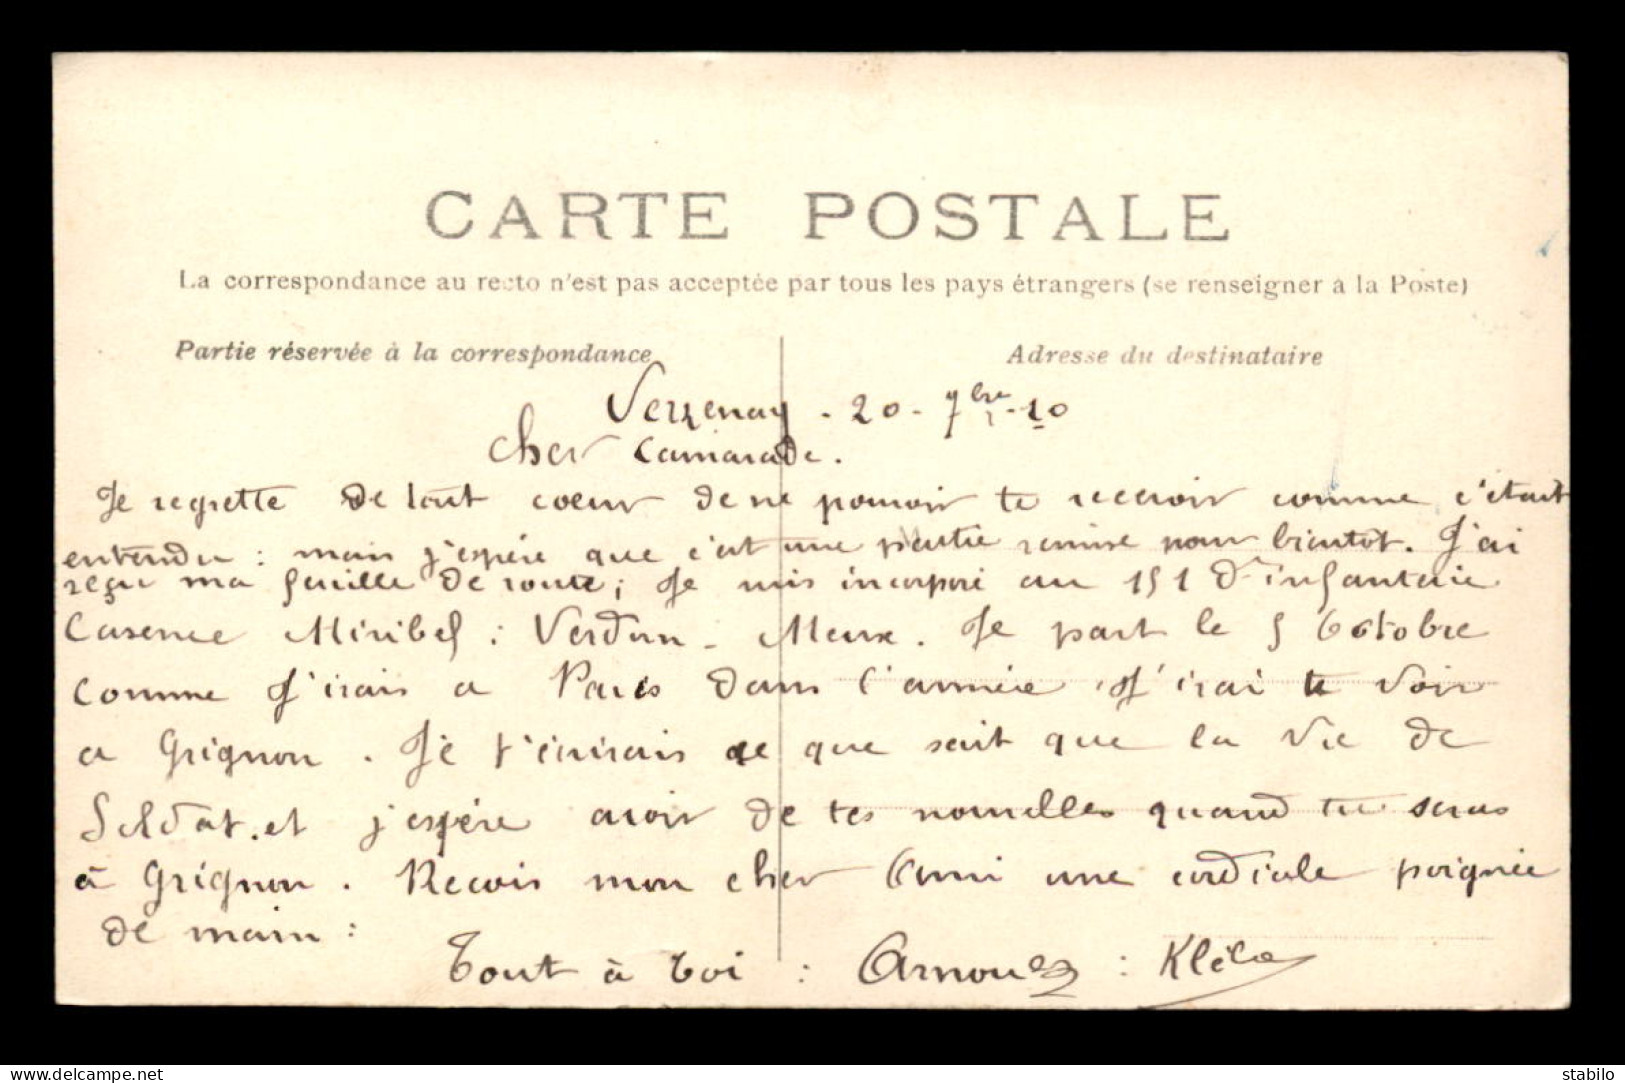 CARTE POSTALE
La correspondance au recto n'est pas acceptée par tous les pays étrangers (se renseigner à la Poste)
Partie réservée à la correspondance
Adresse du destinataire
Verzenay - 20 - 7bre - 10
cher Camarade.
Je regrette de tout coeur de ne pouvoir te recevoir comme c'était
entendu : mais j'espère que c'est une partie remise pour bientôt. J'ai
reçu ma feuille de route ; Je suis incorporé au 151 d'infanterie
Caserne Miribel : Verdun - Meuse. Je part le 5 Octobre
comme J'irais a Paris dans l'année, J'irai te voir
a Grignon. Je t'écrirais ce que sait que la vie de
Soldat. et j'espère avoir de tes nouvelles quand tu seras
à Grignon. Recois mon cher Ami une cordiale poignée
de main :
Tout à toi : Arnould : Kléba
delcampe.net
stabilo